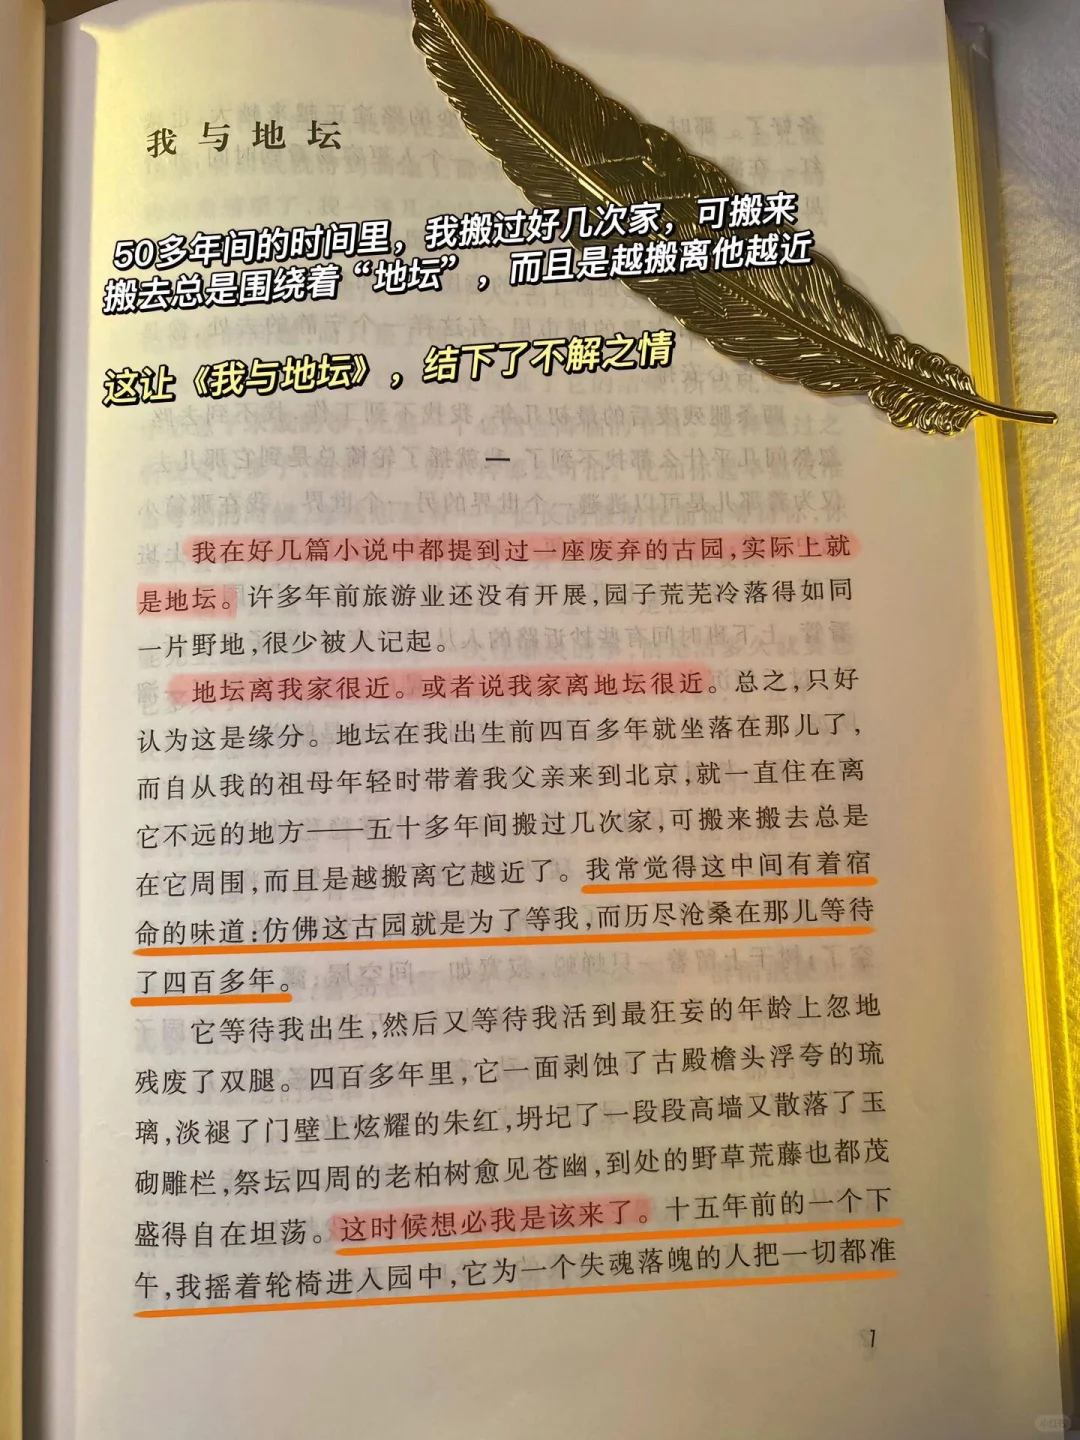 我与地坛
50多年间的时间里，我搬过好几次家，可搬来
搬去总是围绕着“地坛”，而且是越搬离他越近
这让《我与地坛》，结下了不解之情
一
我在好几篇小说中都提到过一座废弃的古园，实际上就
是地坛。许多年前旅游业还没有开展，园子荒芜冷落得如同
一片野地，很少被人记起。
地坛离我家很近。或者说我家离地坛很近。总之，只好
认为这是缘分。地坛在我出生前四百多年就坐落在那儿了，
而自从我的祖母年轻时带着我父亲来到北京，就一直住在离
它不远的地方——五十多年间搬过几次家，可搬来搬去总是
在它周围，而且是越搬离它越近了。我常觉得这中间有着宿
命的味道：仿佛这古园就是为了等我，而历尽沧桑在那儿等待
了四百多年。
它等待我出生，然后又等待我活到最狂妄的年龄上忽地
残废了双腿。四百多年里，它一面剥蚀了古殿檐头浮夸的琉
璃，淡褪了门壁上炫耀的朱红，坍圮了一段段高墙又散落了玉
砌雕栏，祭坛四周的老柏树愈见苍幽，到处的野草荒藤也都茂
盛得自在坦荡。这时候想必我是该来了。十五年前的一个下
午，我摇着轮椅进入园中，它为一个失魂落魄的人把一切都准
1